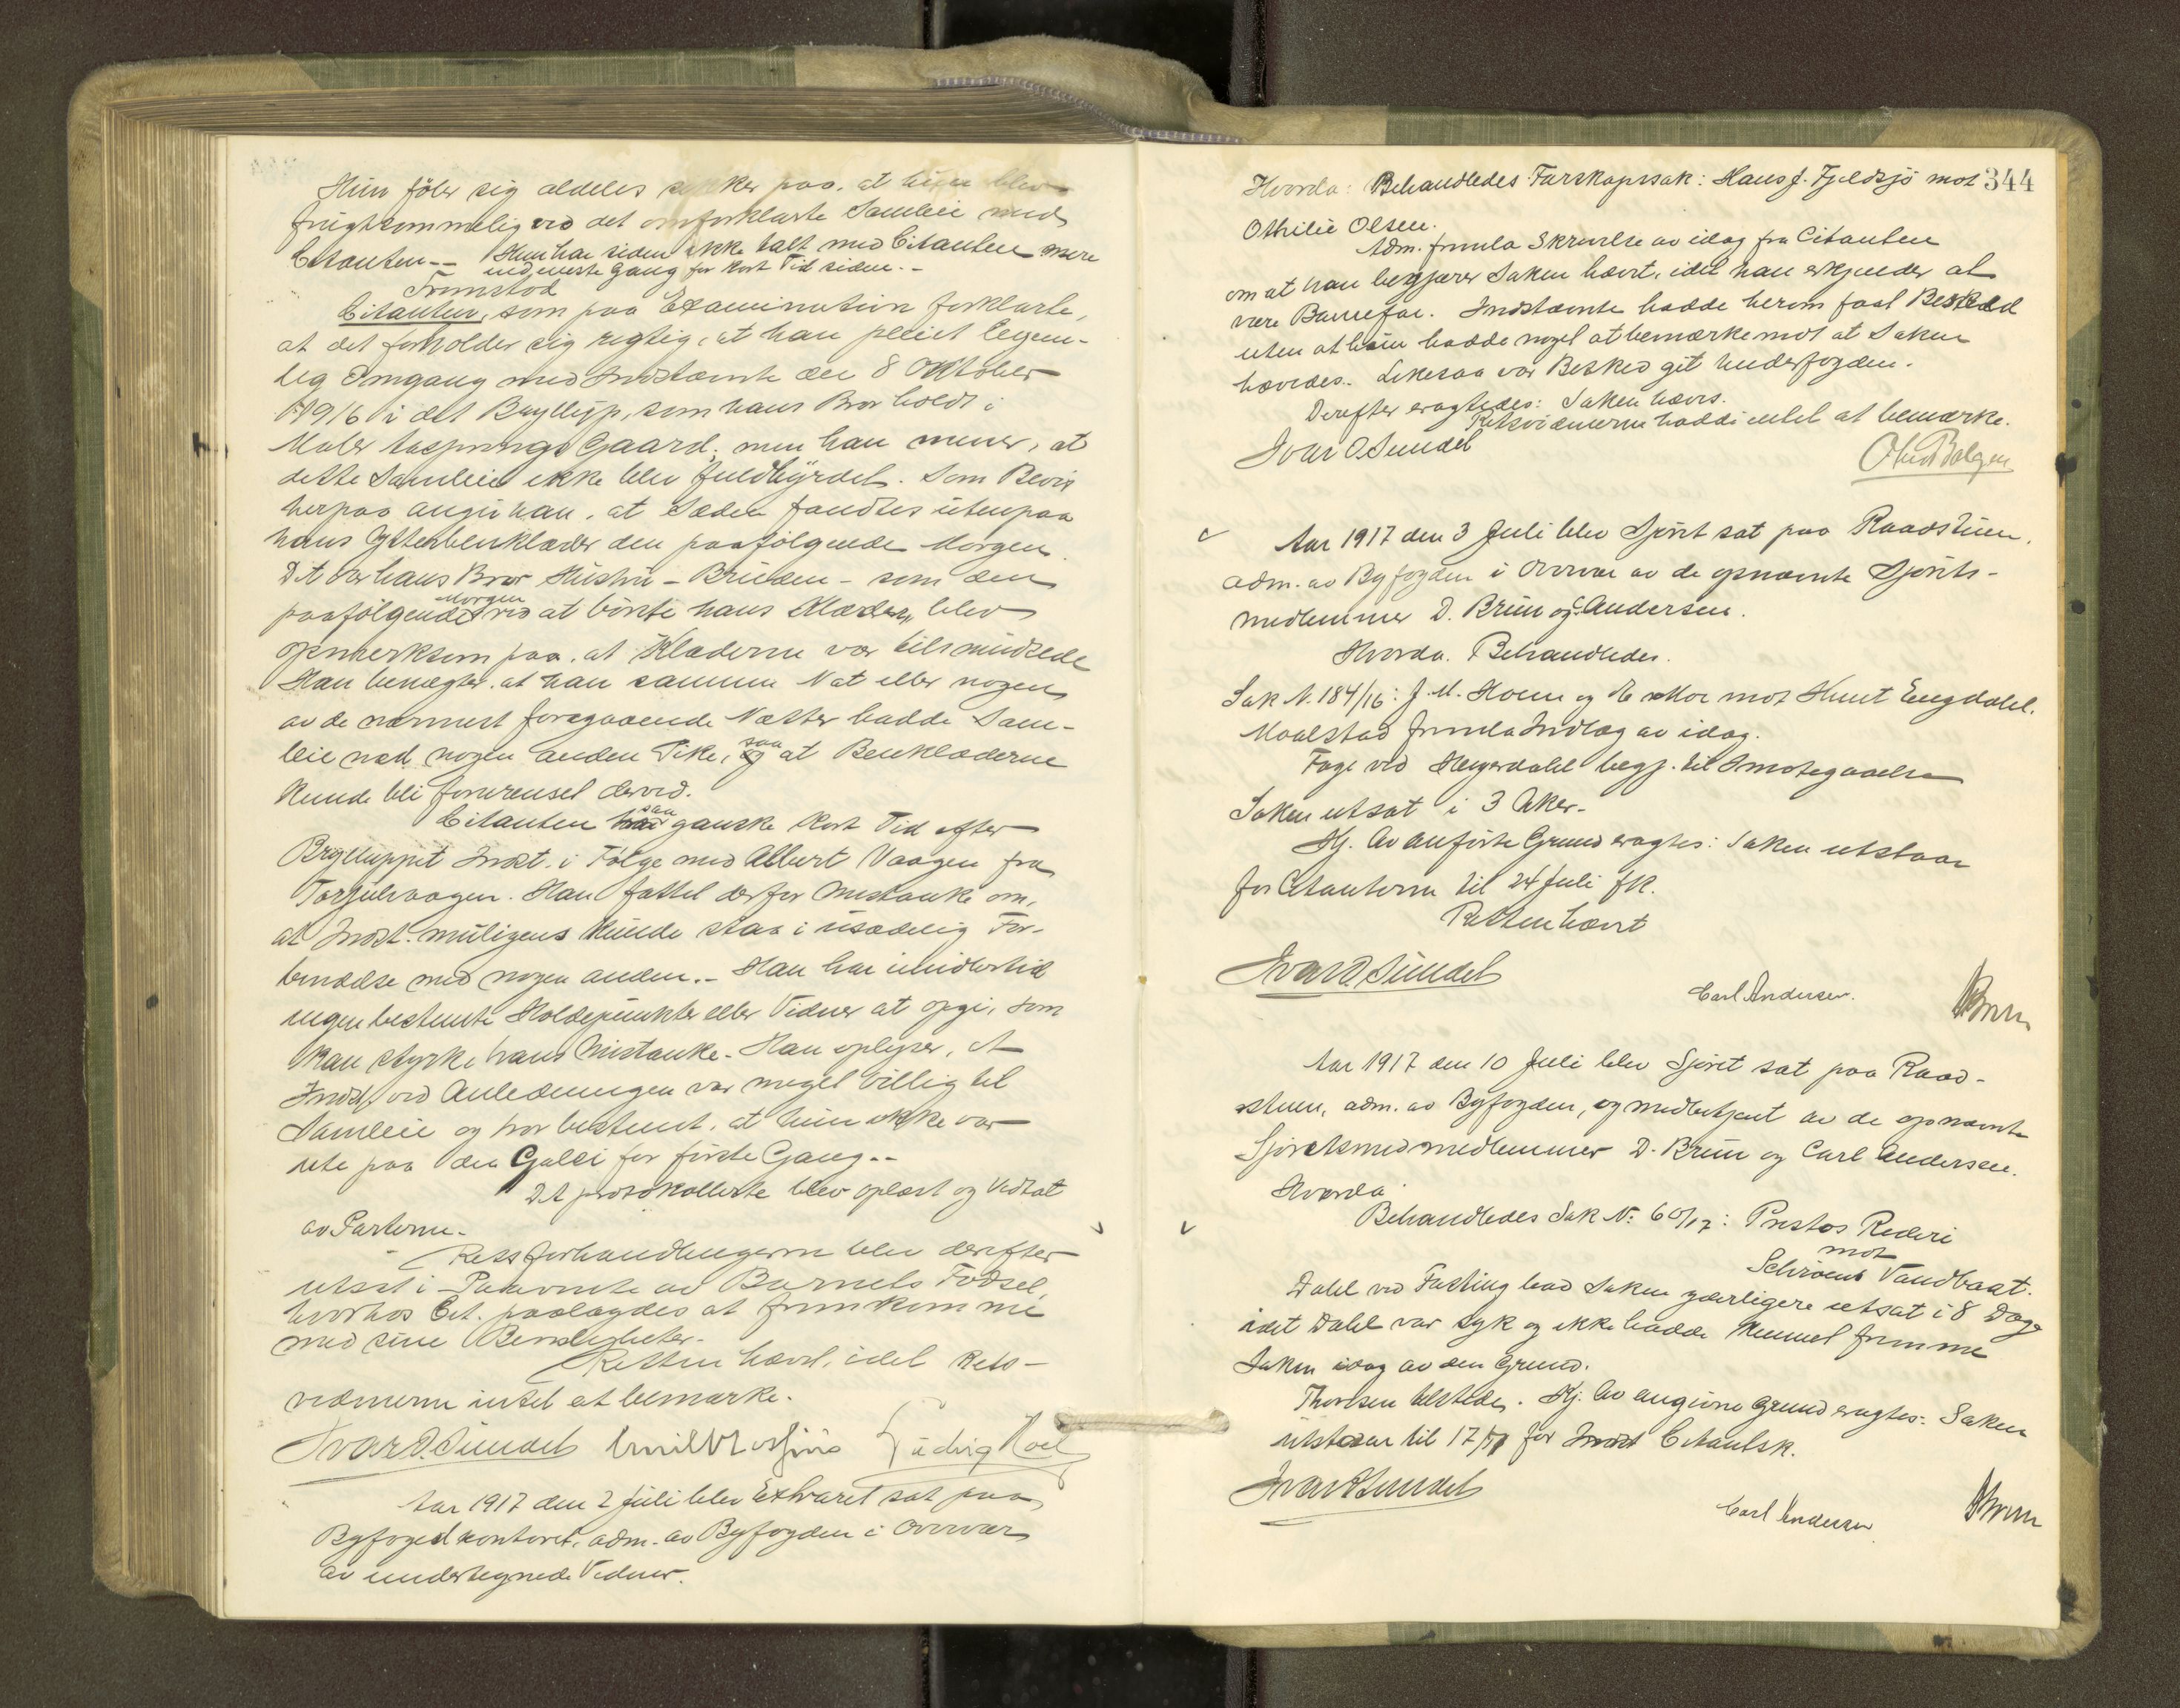 Hun föler sig aldeles sikker paa, at hun blev
frugtsommelig ved det omforklarte Samleie med
Citanten.- Hun har siden ikke talt med Citanten mere
end neste Gang for kort Tid siden.-
Fremstod
Citanten, som paa Examination forklarte,
at det forholder sig rigtig, at han pleiet legem-
lig Omgang med Indstævnte den 8 Oktober
1916 i det Bryllup, som hans Bror holdt i
Maler Gaard; men han mener, at
dette Samleie ikke blev fuldbyrdet. Som Bevis
herpaa angir han, at Sæden fandtes utenpaa
hans Ytterbenklæder den paafölgende Morgen.
Det var hans Bror Hustru - Bruden - som den
paafölgende Morgen ved at börste hans Klæder, blev
opmerksom paa, at Klæderne var tilsmudsede
Han benegter, at han samme Nat eller nogen
av de nærmest foregaaende Nætter hadde Sam-
leie med nogen anden Pike, saa at Benklæderne
kunde bli forurenset derved.
Citanten saa ganske kort Tid efter
Bryllupet Indst. i Fölge med Albert Vaagen fra
Torjulvaagen. Han fattet derfor Mistanke om,
at Indst. muligens kunde staa i usædelig For-
bindelse med nogen anden.- Han har imidlertid
ingen bestemte Holdepunkter eller Vidner at opgi, som
kan styrke hans Mistanke. Han oplyser, at
Indst. ved Anledningen var meget villig til
Samleie og tror bestemt, at hun ikke var
ute paa den Galei for förste Gang.-
Det protokollerte blev oplæst og vedtat
av Parterne.
Retsforhandlingerne blev derefter
utsat i Paavente av Barnets Födsel,
hvorhos Cit. paalagdes at fremkomme
med sine Bevisligheter.
Retten hævet, idet Rets-
vidnerne intet at bemærke.
Ivar O. Sundet Ludvig Hoel
Aar 1917 den 2 Juli blev Extraret sat paa
Byfogedkontoret, adm. av Byfogden i Overvær
av undertegnede Vidner.
344
Hvorda: Behandledes Farskapssak: Hans J. Fjeldsjö mot
Othilie Olsen.
Adm. fremla Skrivelse av idag fra Citanten
om at han begjærer Saken hævet, idet han erkjender at
være Barnefar. Indstævnte hadde herom faat Besked
uten at hun hadde noget at bemærke mot at Saken
hævedes. Likesaa var Besked git Underfogden.
Derefter eragtedes: Saken hæves.
Retsvidnerne hadde intet at bemærke.
Ivar O Sundet
Aar 1917 den 3 Juli blev Sjöret sat paa Raadstuen,
adm. av Byfogden i Overvær av de opnævnte Sjörets-
medlemmer D. Brun og C. Andersen.
Hvorda. Behandledes.
Sak N. 184/16: J. M. Honn og E. Moe mot Knut Engdahl.
Maalstad fremla Indlæg av idag.
Foge ved Heyerdahl begj. til Imötegaaelse
Saken utsat i 3 Uker.-
Kj. Av anförte Grund eragtes: Saken utstaar
for Citanterne til 24 Juli fk.
Retten hævet
Ivar O. Sundet
Carl Andersen.
DBrun
Aar 1917 den 10 Juli blev Sjöret sat paa Raad-
stuen, adm. av Byfogden, og medbetjent av de opnævnte
Sjöretsmedmedlemmer D. Brun og Carl Andersen.
Hvorda
Behandledes Sak N: 60/17: Prestos Rederi
mot
Schröens Vandbaat.
Dahl ved Fasting bad Saken yderligere utsat i 8 Dage
idet Dahl var syk og ikke hadde kunnet fremme
Saken idag av den Grund.
Thoresen tilstede. Kj. Av angivne Grund eragtes: Saken
utstaar til 17/7 for Citantsk.
Ivar O Sundet
Carl Andersen
DBrun